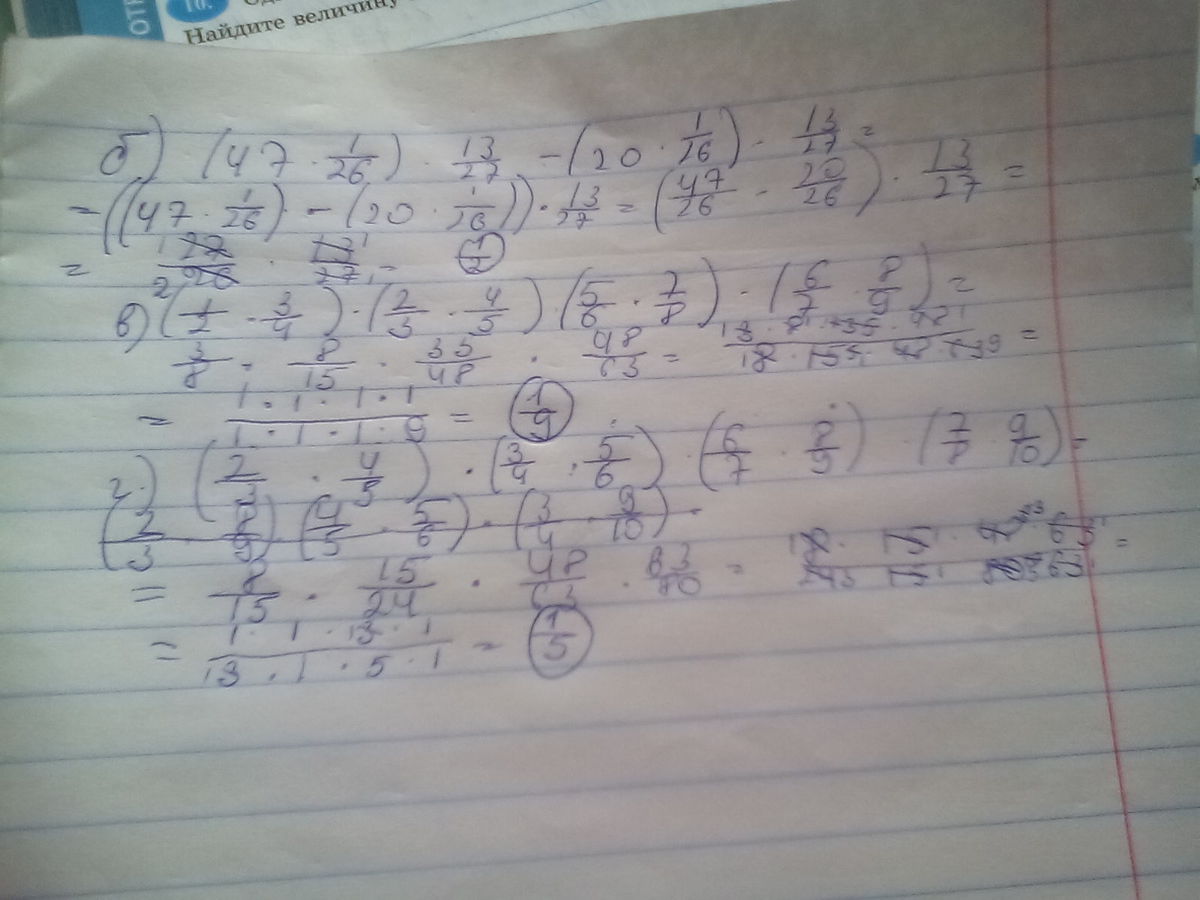 ОТК
10.
Найдите величину
б) (47 · 1/26) · 13/27 - (20 · 1/26) · 13/27 =
= ((47 · 1/26) - (20 · 1/26)) · 13/27 = (47/26 - 20/26) · 13/27 =
= 27/26 · 13/27 = 1/2
в) (1/2 · 3/4) · (2/3 · 4/5) · (5/6 · 7/8) · (6/7 · 8/9) =
3/8 · 8/15 · 35/48 · 48/63 =
= 1 · 1 · 1 · 1 / 1 · 1 · 1 · 9 = 1/9
г) (2/3 · 4/5) · (3/4 · 5/6) · (6/7 · 8/9) · (7/8 · 9/10) =
(2/3 · 8/9) (4/5 · 5/6) · (3/4 · 9/10) ·
= 8/15 · 15/24 · 48/63 · 63/80 =
= 1 · 1 · 13 · 1 / 13 · 1 · 5 · 1 = 1/5